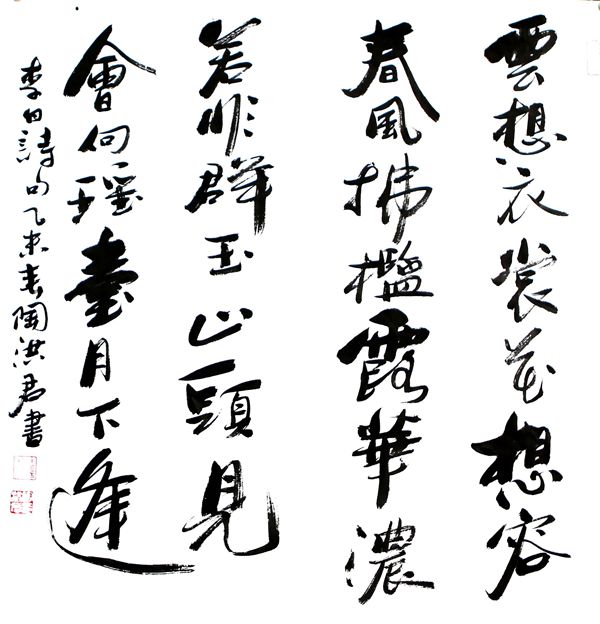 雲想衣裳花想容
春風拂檻露華濃
若非群玉山頭見
會向瑤臺月下逢
李白詩句乙未春陶洪君書